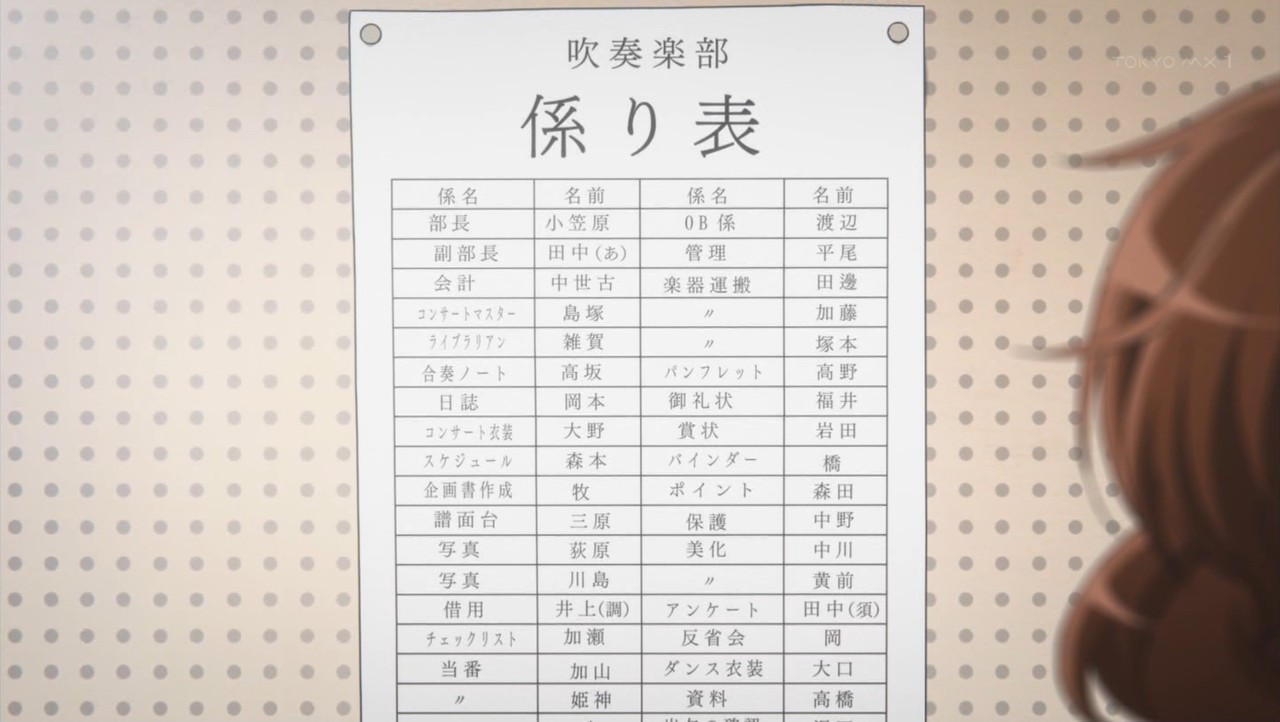 TOKYO MX1
吹奏楽部
係り表
係名 名前 係名 名前
部長 小笠原 OB係 渡辺
副部長 田中(あ) 管理 平尾
会計 中世古 楽器運搬 田邊
コンサートマスター 島塚 〃 加藤
ライブラリアン 雑賀 〃 塚本
合奏ノート 高坂 パンフレット 高野
日誌 岡本 御礼状 福井
コンサート衣装 大野 賞状 岩田
スケジュール 森本 バインダー 橋
企画書作成 牧 ポイント 森田
譜面台 三原 保護 中野
写真 荻原 美化 中川
写真 川島 〃 黄前
借用 井上(調) アンケート 田中(須)
チェックリスト 加瀬 反省会 岡
当番 加山 ダンス衣装 大口
〃 姫神 資料 高橋